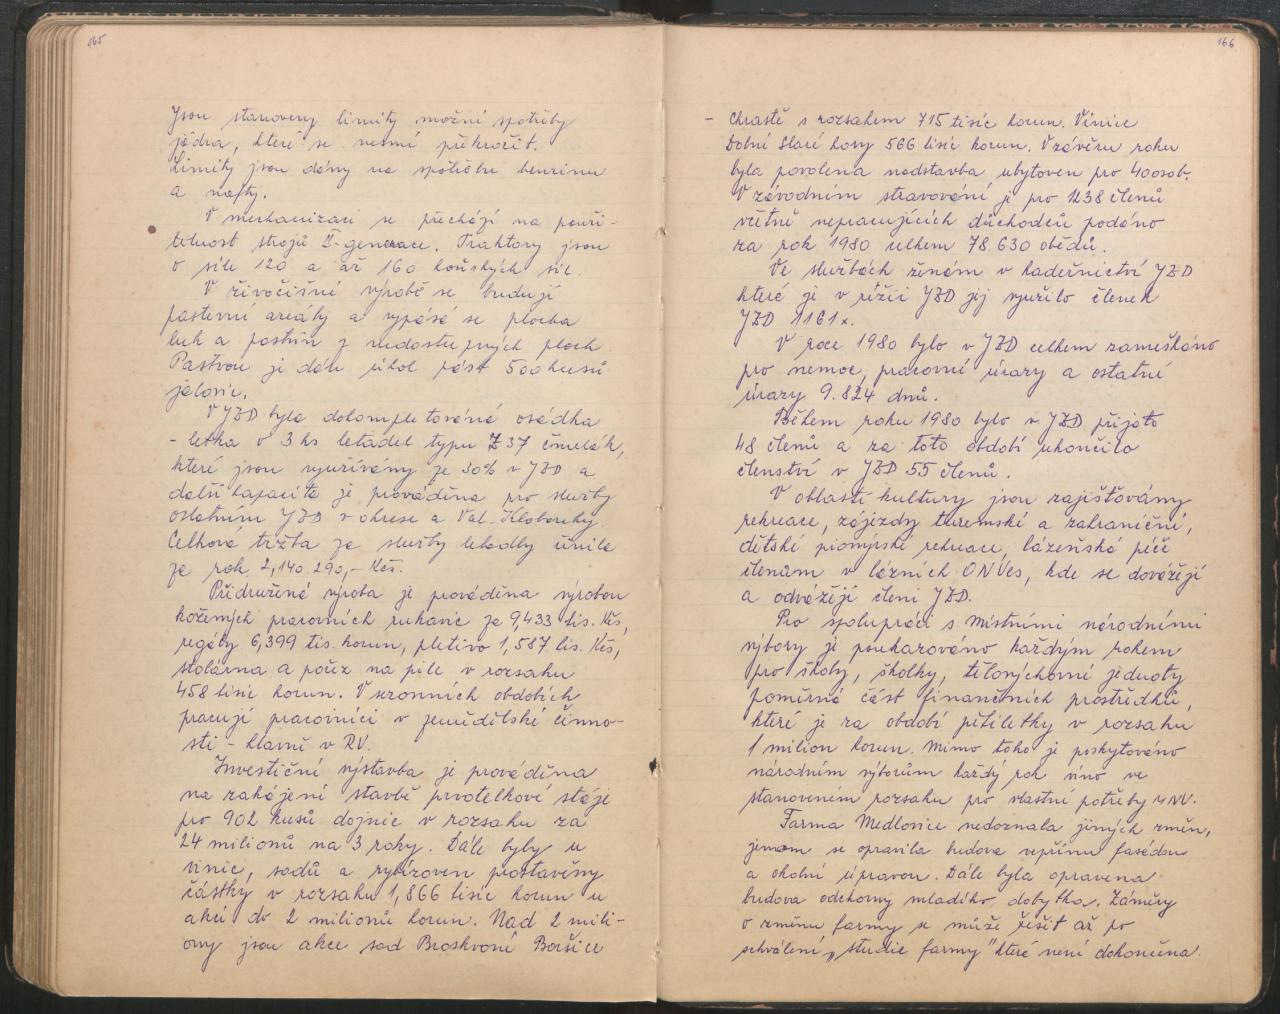 165
Jsou stanoveny limity možné spotřeby
jádra, které se nesmí překročit.
Limity jsou dány na spotřebu benzinu
a nafty.
V mechanizaci se přechází na použi-
telnost strojů II. generace. Traktory jsou
o síle 120 a až 160 koňských sil.
V živočišné výrobě se budují
pastevní areály a vypásá se plocha
luk a pastvin z nedostupných ploch.
Pastvou je dán úkol pást 500 kusů
jalovic.
V JZD byla dokompletována osádka
- letka o 3 ks letadel typu Z 37 čmelák,
které jsou využívány ze 30% v JZD a
další kapacita je prováděna pro služby
ostatním JZD v okrese a Val. Klobouky.
Celková tržba za služby letadly činila
za rok 2,140 290,- Kčs.
Přidružená výroba je prováděna výrobou
kožených pracovních rukavic za 9,433 tis. Kčs,
regály 6,399 tis. korun, pletivo 1,587 tis. Kčs,
stolárna a pořez na pile v rozsahu
458 tisíc korun. V sezonních obdobích
pracují pracovníci v zemědělské činno-
sti - hlavně v RV.
Investiční výstavba je prováděna
na zahájení stavbě prvotelkové stáje
pro 902 kusů dojnic v rozsahu za
24 milionů na 3 roky. Dále byly u
vinic, sadů a rybízoven prostavěny
částky v rozsahu 1,866 tisíc korun u
akcí do 2 milionů korun. Nad 2 mili-
ony jsou akce sad Broskvoní Boršice
166
- Chrastě s rozsahem 715 tisíc korun. Vinice
Dolní Staré hory 566 tisíc korun. V závěru roku
byla povolena nadstavba ubytoven pro 40 osob.
V závodním stravování je pro 1238 členů
včetně nepracujících důchodců podáno
za rok 1980 celkem 78.630 obědů.
Ve službách ženám v kadeřnictví JZD
které je v režii JZD jej využilo členek
JZD 1161x.
V roce 1980 bylo v JZD celkem zameškáno
pro nemoce, pracovní úrazy a ostatní
úrazy 9.824 dnů.
Během roku 1980 bylo v JZD přijato
48 členů a za toto období ukončilo
členství v JZD 55 členů.
V oblasti kultury jsou zajišťovány
rekreace, zájezdy tuzemské a zahraniční,
dětské pionýrské rekreace, lázeňská péče
členům v lázních ONVes, kde se dovážejí
a odvážejí členi JZD.
Pro spolupráci s místními národními
výbory je poukazováno každým rokem
pro školy, školky, tělovýchovné jednoty
poměrná část finančních prostředků,
které je za období pětiletky v rozsahu
1 milion korun. Mimo toho je poskytováno
národním výborům každý rok víno ve
stanoveném rozsahu pro vlastní potřeby MNV.
Farma Medlovice nedoznala jiných změn,
jenom se opravila budova vepřína fasádou
a okolní úpravou. Dále byla opravena
budova odchovny mladého dobytka. Záměry
o změnu farmy se může řešit až po
schválení „studie farmy" které není dokončena.